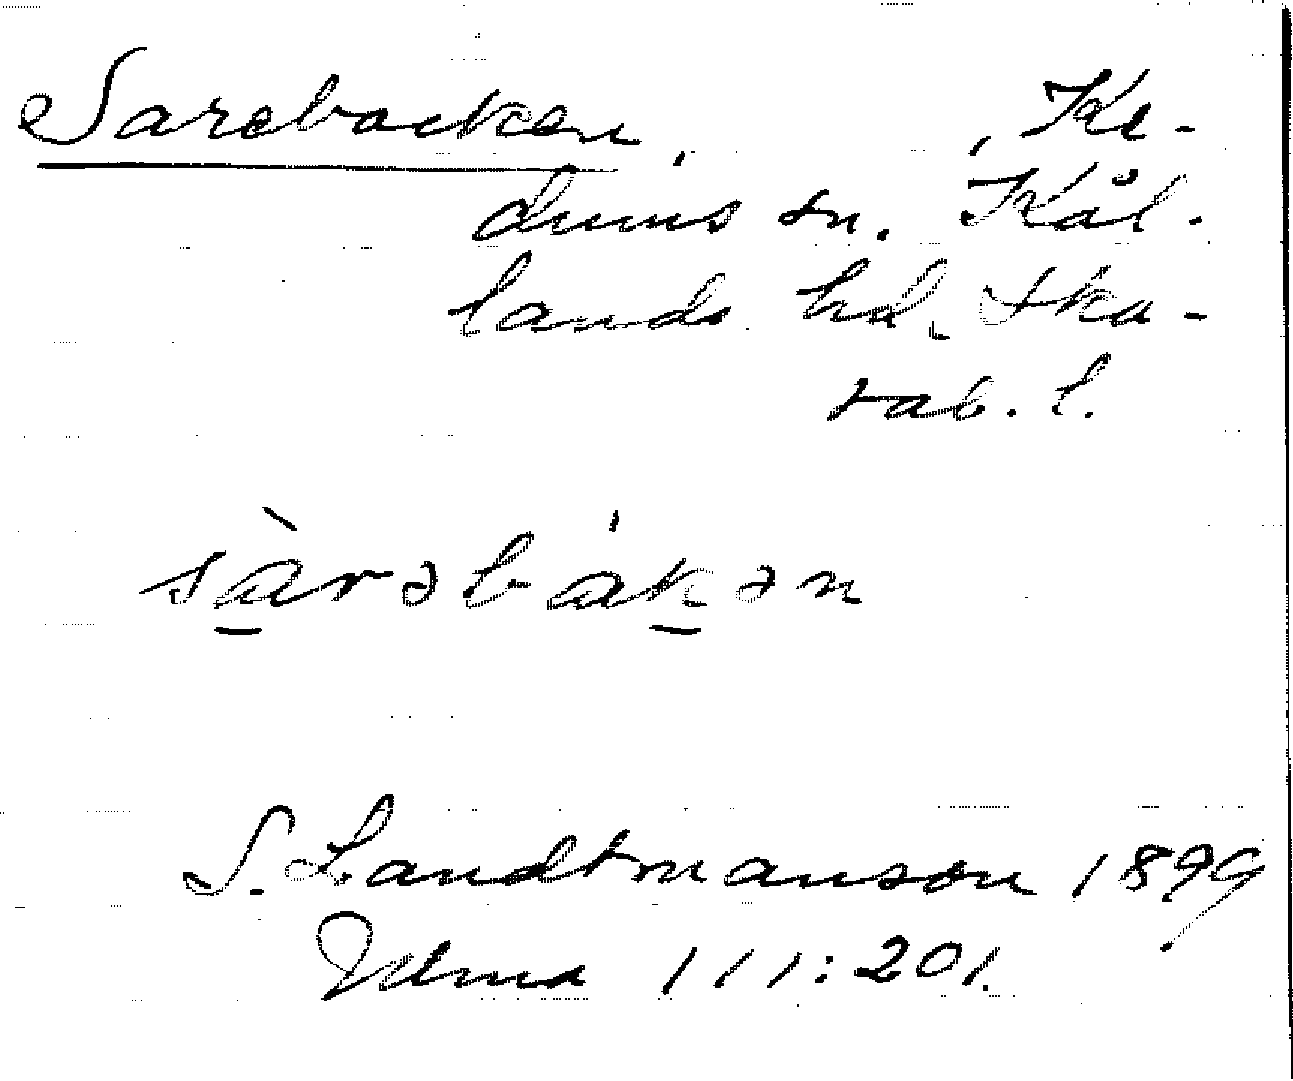 Sarebacken, , Ke-
dums sn. Kål-
lands hd, Ska-
rab. l.
sàrəbákən
S. Landtmanson 1899
Ulma 111:201.